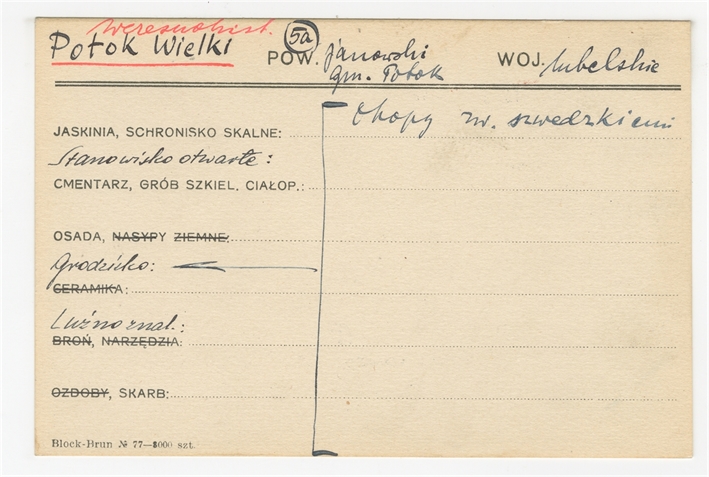 wczesnohist.
Potok Wielki
5a
POW. janowski
gm. Potok
WOJ. lubelskie
Okopy zw. szwedzkiemi
JASKINIA, SCHRONISKO SKALNE:
Stanowisko otwarte:
CMENTARZ, GRÓB SZKIEL. CIAŁOP.:
OSADA, NASYPY ZIEMNE:
Grodzisko:
CERAMIKA:
Luźno znal.:
BROŃ, NARZĘDZIA:
OZDOBY, SKARB:
Block-Brun № 77—3000 szt.